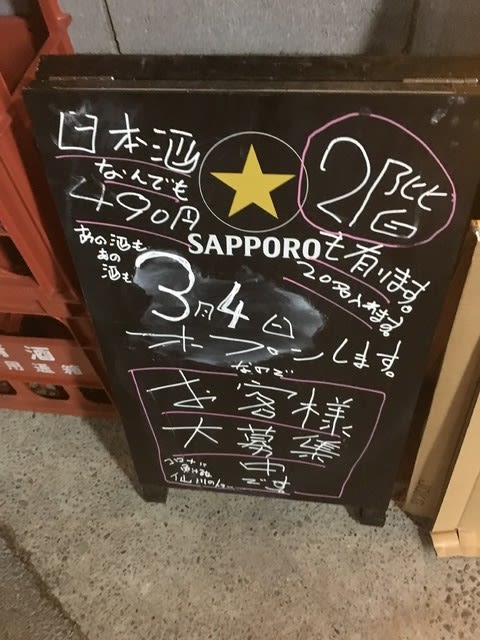 日本酒
なんでも
490円
あの酒も
あの
酒も
SAPPORO
2階
も有ります。
20名入れます。
3月4日
オープンします。
なので
お客様
大募集
中
です
コロナに
負けるな
仙川の
酒
用通箱